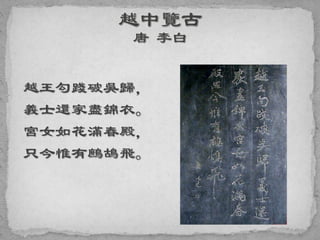 越中覽古
唐 李白
越王勾踐破吳歸，
義士還家盡錦衣。
宮女如花滿春殿，
只今惟有鷓鴣飛。
越王勾踐破吳歸義士還
家盡錦衣宮女如花滿春
殿只今惟有鷓鴣飛